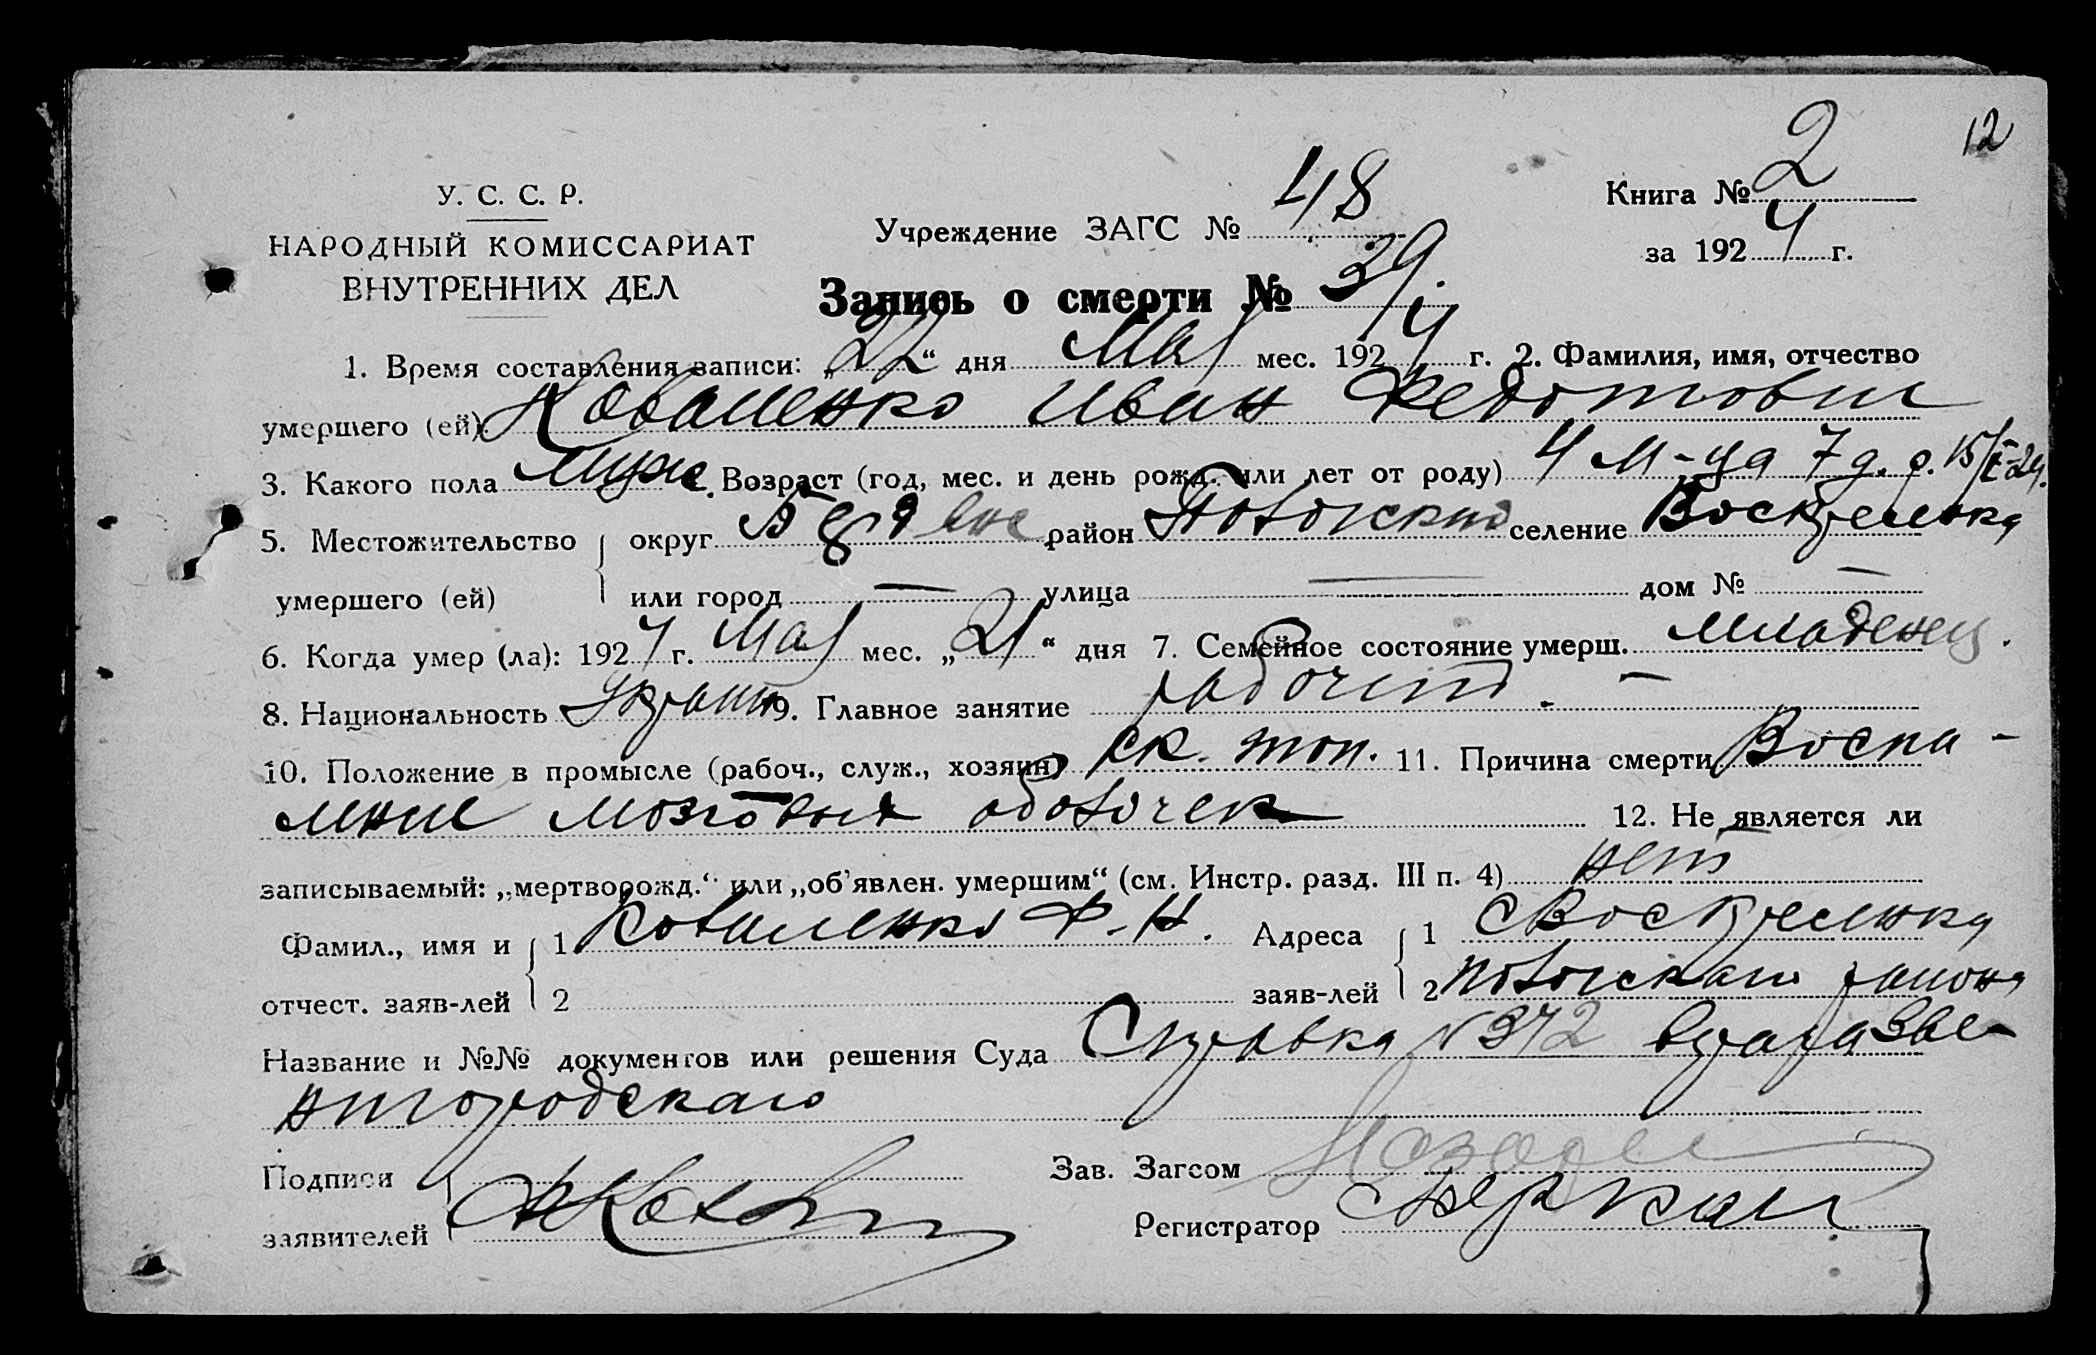 12
У. С. С. Р.
НАРОДНЫЙ КОМИССАРИАТ
ВНУТРЕННИХ ДЕЛ
Учреждение ЗАГС № 48
Книга № 2
за 1924 г.
Запись о смерти № 39.
1. Время составления записи: „22“ дня Мая мес. 1924 г. 2. Фамилия, имя, отчество
умершего (ей): Коваленко Иван Федотович
3. Какого пола муж. Возраст (год, мес. и день рожд. или лет от роду) 4 м-ца 7 д. р. 15/I-24.
5. Местожительство округ район Пологский селение Воскресенка
умершего (ей) или город — улица — дом № —
6. Когда умер (ла): 1924 г. Мая мес. „21“ дня 7. Семейное состояние умерш. младенец.
8. Национальность Украин 9. Главное занятие рабочий. —
10. Положение в промысле (рабоч., служ., хозяин) 11. Причина смерти Воспа-
ление мозговых оболочек 12. Не является ли
записываемый: „мертворожд.“ или „об'явлен. умершим“ (см. Инстр. разд. III п. 4) нет
Фамил., имя и 1 Коваленко Ф. Н. Адреса 1 с Воскресенка
отчест. заяв-лей 2 заяв-лей 2 Пологскаго района
Название и №№ документов или решения Суда Справка № 372 врача Зве-
нигородскаго
Подписи Зав. Загсом
заявителей Регистратор